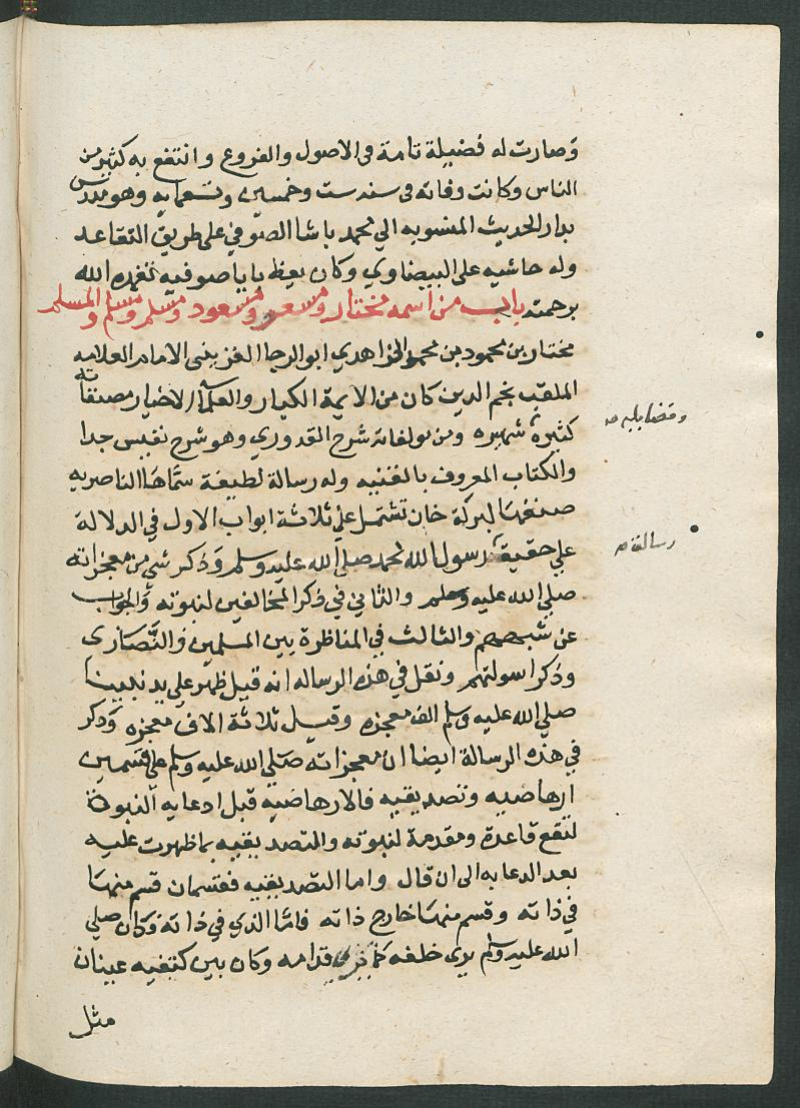 وصارت له فضيلة تامة فى الاصول والفروع وانتفع به كثير من
الناس وكانت وفاته فى سنة ست وخمسين وتسعمايه وهو مدرس
بدار الحديث المنسوبه الي محمد باشا الصوفي على طريق التقاعد
وله حاشيه على البيضاوي وكان يعظ بايا صوفيه تغمده الله
برحمته باب من اسمه مختار ومسعر ومسعود ومسلم ومسلم والمسلم
مختار بن محمود بن محمد الزاهدي ابو الرجا الغزمينى الامام العلامه
الملقب بنجم الدين كان من الايمة الكبار والعلمآ الاخيار مصنفاته
كثيرة شهيره ومن مولفاته شرح القدوري وهو شرح نفيس جدا
وفضايله صه
والكتاب المعروف بالقنيه وله رسالة لطيفة سماها الناصريه
صنفها لبركة خان تشتمل علي ثلاثة ابواب الاول في الدلالة
علي حقيقة رسول الله محمد صلي الله عليه وسلم وذكر شي من معجزاته
رسالة صه
صلي الله عليه وسلم والثاني في ذكر المخالفين لنبوته والجواب
عن شبههم والثالث في المناظرة بين المسلمين والنصارى
وذكر اسولتهم ونقل في هذه الرساله انه قيل ظهر علي يد نبينا
صلي الله عليه وسلم الف معجزه وقيل ثلاثة الاف معجزه وذكر
في هذه الرسالة ايضا ان معجزاته صلي الله عليه وسلم على قسمين
ارهاصيه وتصديقيه فالارهاصيه قبل ادعايه النبوة
لتقع قاعدة ومقدمة لنبوته والتصديقيه بما ظهرت عليه
بعد الدعابه الى ان قال واما التصديقيه فقسمان قسم منها
في ذاته وقسم منها خارج ذاته فاما الذي في ذاته وكان صلي
الله عليه وسلم يرى خلفه كما يرى قدامه وكان بين كتفيه عينان
مثل